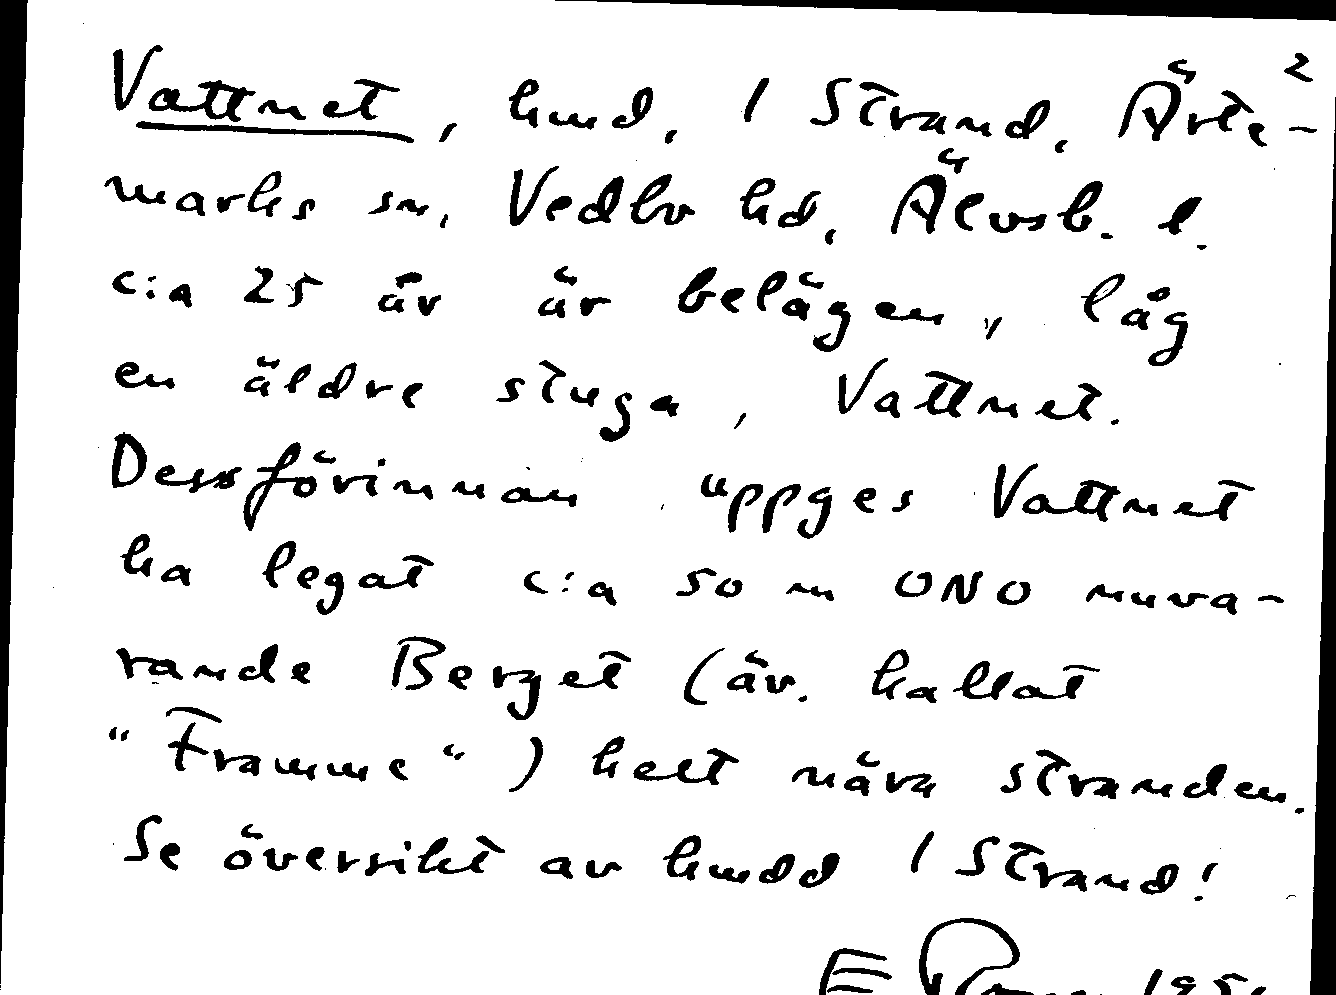 2
Vattnet, hmd, 1 Strand, Ärte-
marks sn, Vedbo hd, Älvsb. l.
c:a 25 år är belägen, låg
en äldre stuga, Vattnet.
Dessförinnan uppges Vattnet
ha legat c:a 50 m ONO nuva-
rande Berget (äv. kallat
"Framme") helt nära stranden.
Se översikt av hmdd 1 Strand!
E